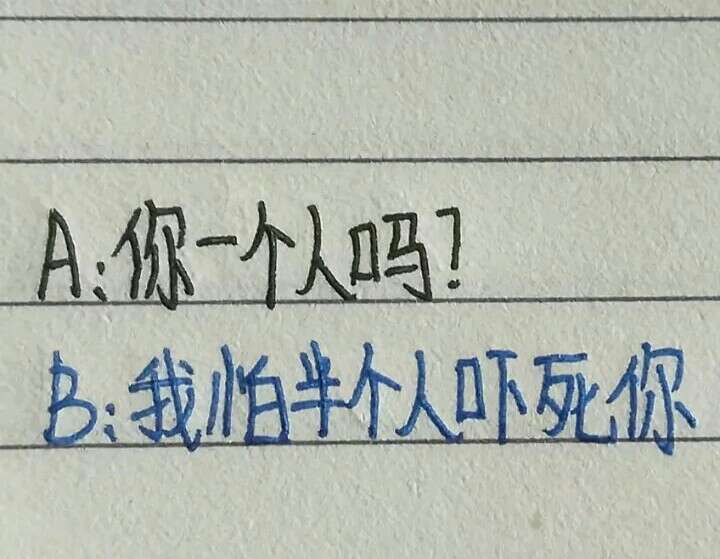 A:你一个人吗?
B:我怕半个人吓死你